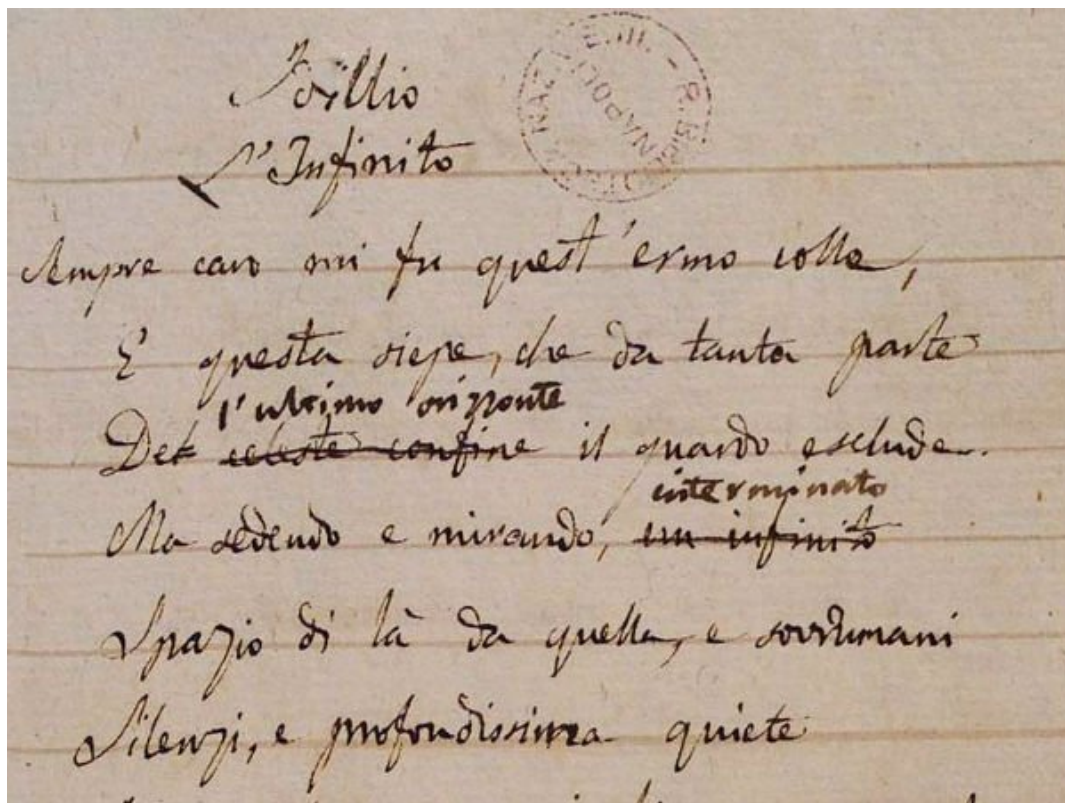 Idillio
L'Infinito
R. BIBLIOTECA NAZ. V. E. III. - NAPOLI
Sempre caro mi fu quest'ermo colle,
E questa siepe, che da tanta parte
l'ultimo orizzonte
Del celeste confine il guardo esclude.
interminato
Ma sedendo e mirando, un infinito
Spazio di là da quella, e sovrumani
Silenzi, e profondissima quiete